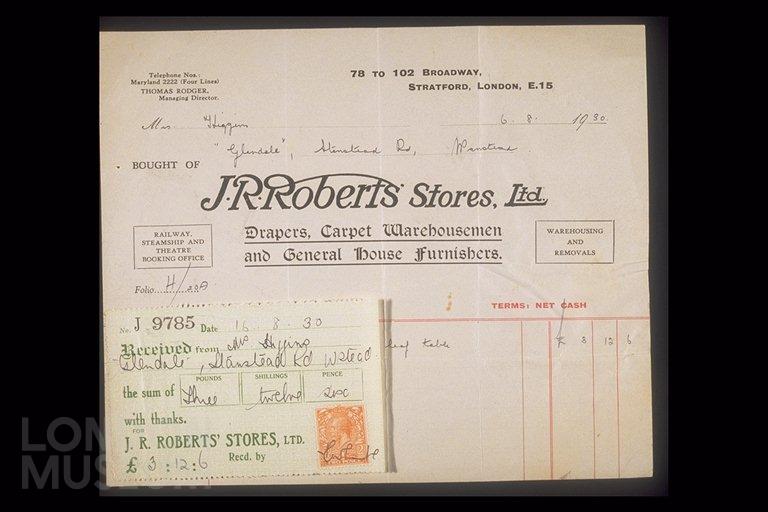 Telephone Nos.:
Maryland 2222 (Four Lines)
THOMAS RODGER,
Managing Director.
78 TO 102 BROADWAY,
STRATFORD, LONDON, E.15
Mrs Higgins 6. 8. 1930
"Glendale", Stanstead Rd, Wanstead.
BOUGHT OF
J.R. Roberts' Stores, Ltd.
RAILWAY,
STEAMSHIP AND
THEATRE
BOOKING OFFICE
Drapers, Carpet Warehousemen
and General House Furnishers.
WAREHOUSING
AND
REMOVALS
Folio H/
TERMS: NET CASH
leaf table £ 3 12 6
No. J 9785 Date 16. 8. 30
Received from Mrs Higgins
"Glendale", Stanstead Rd Wstead.
POUNDS SHILLINGS PENCE
the sum of Three twelve six
with thanks.
FOR
J. R. ROBERTS' STORES, LTD.
£ 3 : 12 : 6 Recd. by
LON
MUSEUM